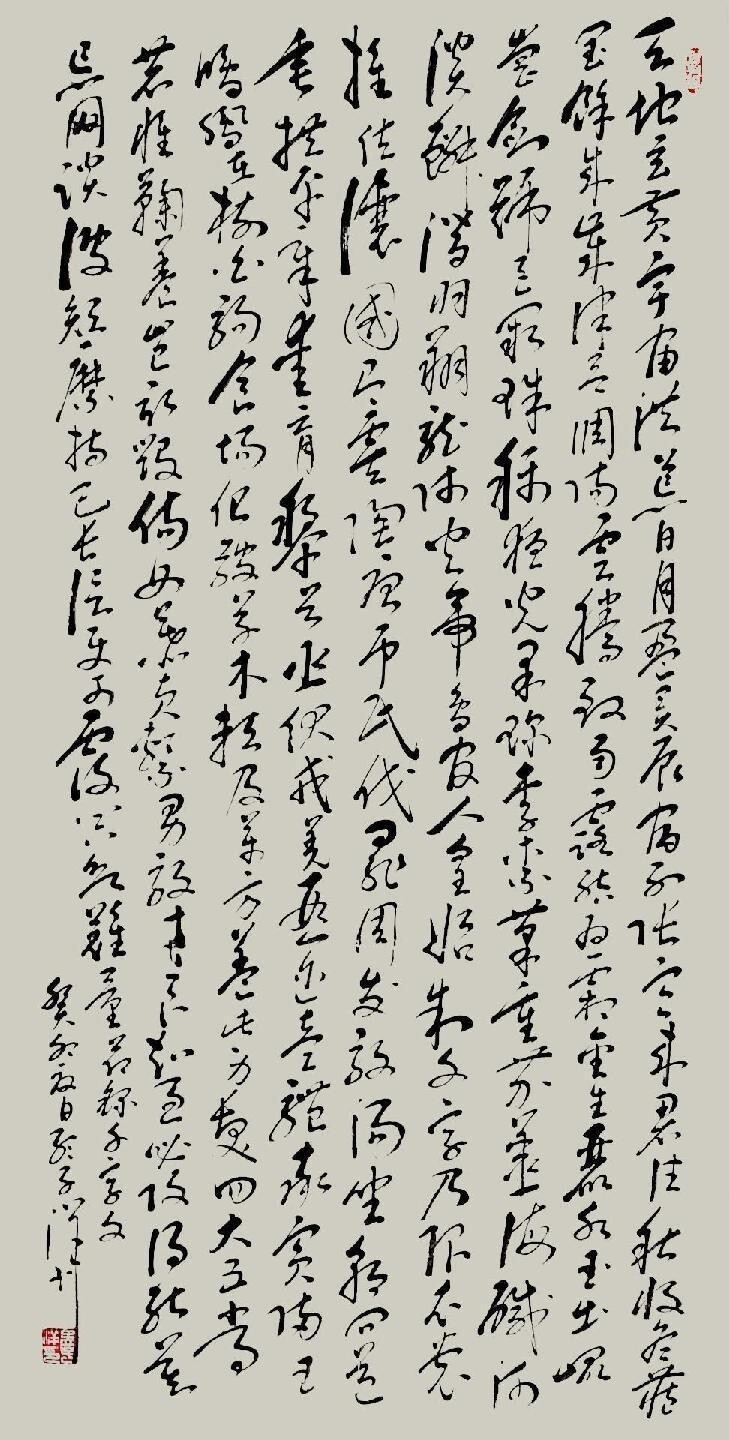 天地玄黃宇宙洪荒日月盈昃辰宿列張寒來暑往秋收冬藏
閏餘成歲律呂調陽雲騰致雨露結為霜金生麗水玉出崐
崗劍號巨闕珠稱夜光果珍李柰菜重芥薑海鹹河
淡鱗潛羽翔龍師火帝鳥官人皇始制文字乃服衣裳
推位讓國有虞陶唐弔民伐罪周發殷湯坐朝問道
垂拱平章愛育黎首臣伏戎羌遐邇壹體率賓歸王
鳴鳳在樹白駒食場化被草木賴及萬方蓋此身髮四大五常
恭惟鞠養豈敢毀傷女慕貞絜男效才良知過必改得能莫
忘罔談彼短靡恃己長信使可覆器欲難量節錄千字文
癸卯夏日書